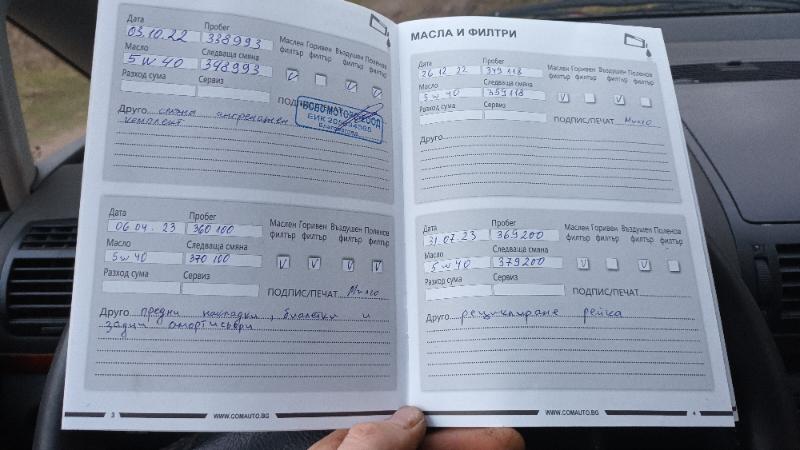 Дата Пробег
03.10.22 338993 Маслен Горивен Въздушен Поленов
филтър филтър филтър филтър
Масло Следваща смяна
5w40 348993 V V V
Разход сума Сервиз
ПОДПИС/ПЕЧАТ
ЕИК
Благоевград
Друго смяна ангренажен
комплект
Дата Пробег
06.04.23 360100 Маслен Горивен Въздушен Поленов
филтър филтър филтър филтър
Масло Следваща смяна
5w40 370100 V V V V
Разход сума Сервиз
ПОДПИС/ПЕЧАТ Митко
Друго предни накладки, биалетки и
задни амортисьори
3 WWW.COMAUTO.BG
МАСЛА И ФИЛТРИ
Дата Пробег
26.12.22 349118 Маслен Горивен Въздушен Поленов
филтър филтър филтър филтър
Масло Следваща смяна
5w40 359118 V V
Разход сума Сервиз
ПОДПИС/ПЕЧАТ Митко
Друго
Дата Пробег
31.07.23 369200 Маслен Горивен Въздушен Поленов
филтър филтър филтър филтър
Масло Следваща смяна
5w40 379200 V V
Разход сума Сервиз
ПОДПИС/ПЕЧАТ
Друго рециклиране рейка
WWW.COMAUTO.BG 4